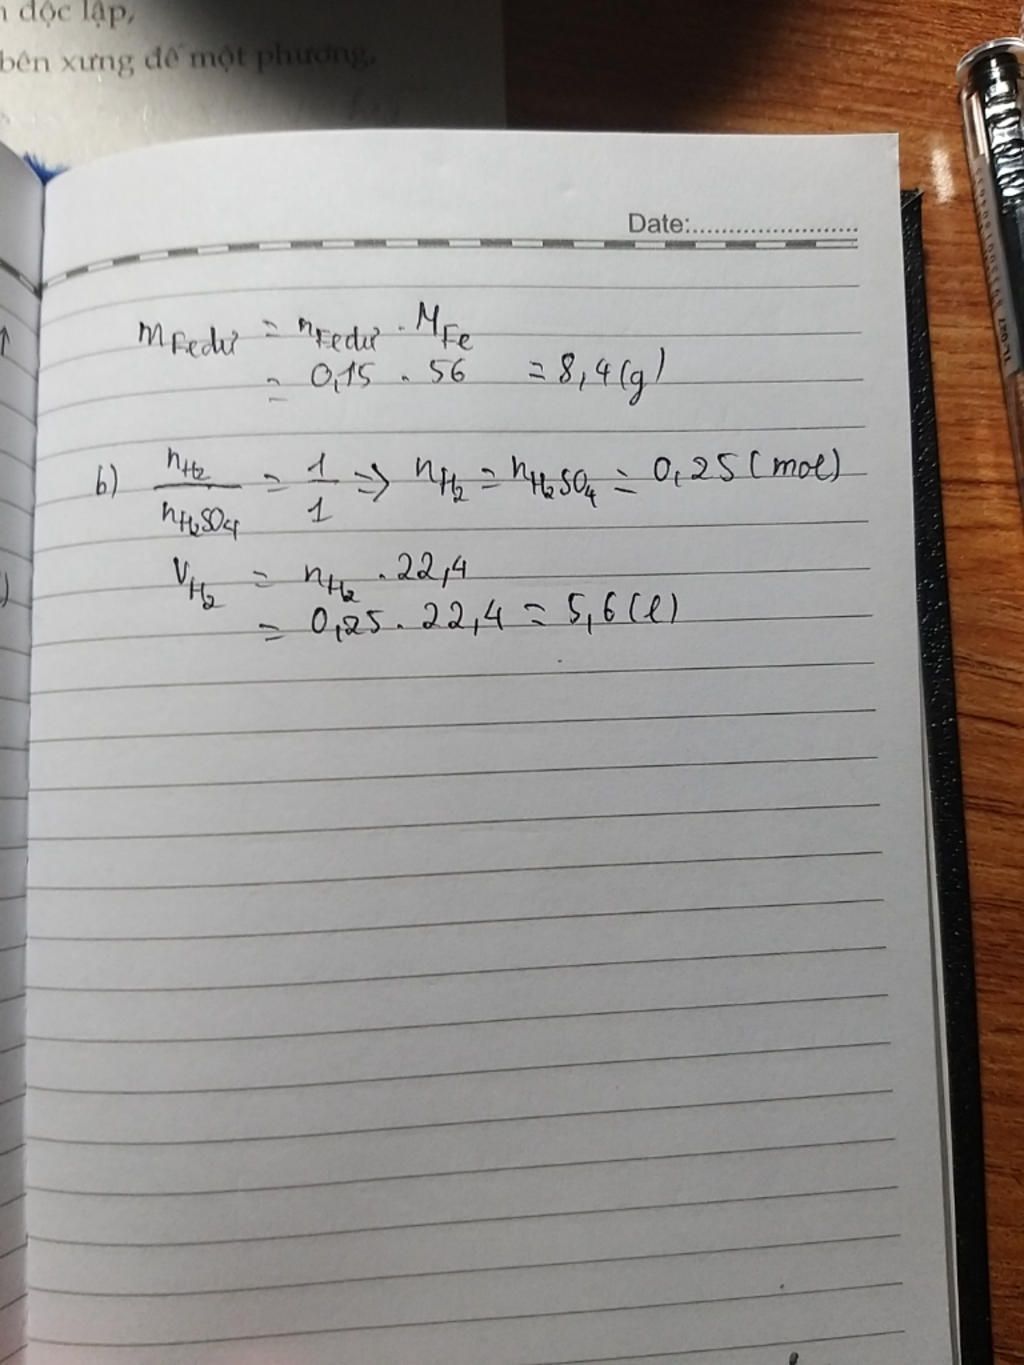 độc lập,
bên xưng để một phương,
Date:
m Fe dư = n Fe dư . M Fe
= 0,15 . 56 = 8,4 (g)
b) nH₂/nH₂SO₄ = 1/1 => nH₂ = nH₂SO₄ = 0,25 (mol)
VH₂ = nH₂ . 22,4
= 0,25 . 22,4 = 5,6 (l)